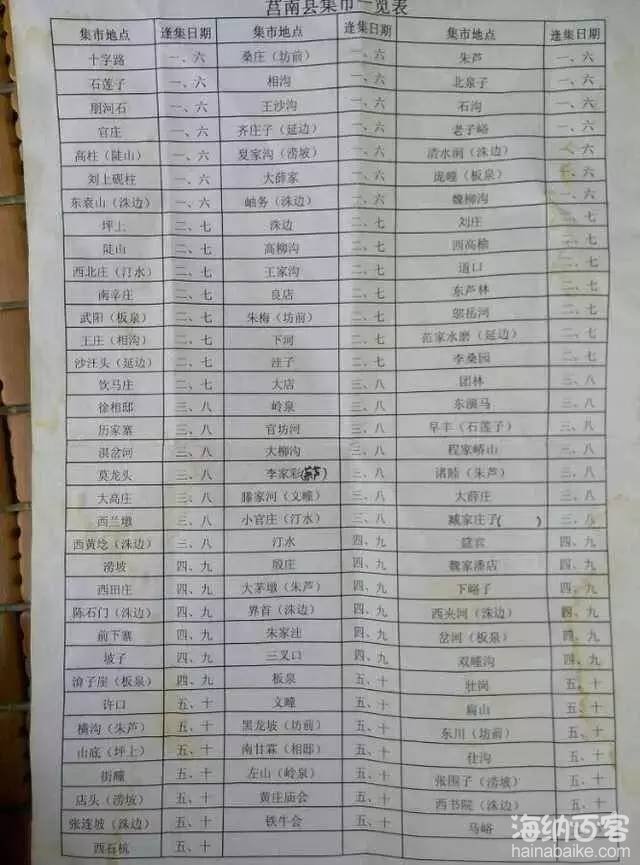 莒南县集市一览表
集市地点 逢集日期 集市地点 逢集日期 集市地点 逢集日期
十字路 一、六 桑庄（坊前） 一、六 朱芦 一、六
石莲子 一、六 相沟 一、六 北泉子 一、六
朋河石 一、六 王沙沟 一、六 石沟 一、六
官庄 一、六 齐庄子（延边） 一、六 老子峪 一、六
高柱（陡山） 一、六 夏家沟（涝坡） 一、六 清水涧（洙边） 一、六
刘上砚柱 一、六 大薛家 一、六 庞疃（板泉） 一、六
东袁山（洙边） 一、六 岫务（洙边） 一、六 魏柳沟 一、六
坪上 二、七 洙边 二、七 刘庄 二、七
陡山 二、七 高柳沟 二、七 西高榆 二、七
西北庄（汀水） 二、七 王家沟 二、七 道口 二、七
南辛庄 二、七 良店 二、七 东芦林 二、七
武阳（板泉） 二、七 朱梅（坊前） 二、七 邬岳河 二、七
王庄（相沟） 二、七 下河 二、七 范家水磨（延边） 二、七
沙汪头（延边） 二、七 洼子 二、七 李桑园 二、七
饮马庄 二、七 大店 三、八 团林 三、八
徐相邸 三、八 岭泉 三、八 东演马 三、八
历家寨 三、八 官坊河 三、八 早丰（石莲子） 三、八
淇岔河 三、八 大柳沟 三、八 程家峤山 三、八
莫龙头 三、八 李家彩 三、八 渚睦（朱芦） 三、八
大高庄 三、八 滕家河（文疃） 三、八 大薛庄 三、八
西兰墩 三、八 小官庄（汀水） 三、八 臧家庄子（ ） 三、八
西黄埝（洙边） 三、八 汀水 四、九 筵宾 四、九
涝坡 四、九 殷庄 四、九 魏家潘店 四、九
西田庄 四、九 大茅墩（朱芦） 四、九 下峪子 四、九
陈石门（洙边） 四、九 界首（洙边） 四、九 西夹河（洙边） 四、九
前下寨 四、九 朱家洼 四、九 岔河（板泉） 四、九
坡子 四、九 三叉口 四、九 双疃沟 四、九
渰子崖（板泉） 四、九 板泉 五、十 壮岗 五、十
许口 五、十 文疃 五、十 扁山 五、十
横沟（朱芦） 五、十 黑龙坡（坊前） 五、十 东川（坊前） 五、十
山底（坪上） 五、十 南甘霖（相邸） 五、十 仕沟 五、十
街疃 五、十 左山（岭泉） 五、十 张围子（涝坡） 五、十
店头（涝坡） 五、十 黄庄庙会 五、十 西书院（洙边） 五、十
张连坡（洙边） 五、十 铁牛会 五、十 马峪
西石杭 五、十
海纳百客
hainabaike.com